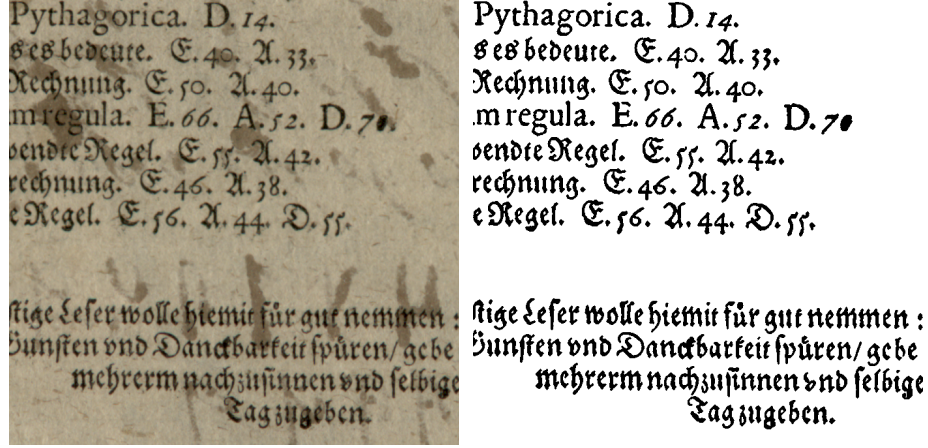 Pythagorica. D. 14.
s es bedeute. E. 40. A. 33.
Rechnung. E. 50. A. 40.
m regula. E. 66. A. 52. D. 70.
endte Regel. E. 55. A. 42.
rechnung. E. 46. A. 38.
e Regel. E. 56. A. 44. D. 55.
ſtige Leſer wolle hiemit für gut nemmen :
Gunſten vnd Danckbarkeit ſpüren/ gebe
mehrerm nachzuſinnen vnd ſelbige
Tag zugeben.
Pythagorica. D. 14.
s es bedeute. E. 40. A. 33.
Rechnung. E. 50. A. 40.
m regula. E. 66. A. 52. D. 70
endte Regel. E. 55. A. 42.
rechnung. E. 46. A. 38.
e Regel. E. 56. A. 44. D. 55.
ſtige Leſer wolle hiemit für gut nemmen :
Gunſten vnd Danckbarkeit ſpüren/ gebe
mehrerm nachzuſinnen vnd ſelbige
Tag zugeben.